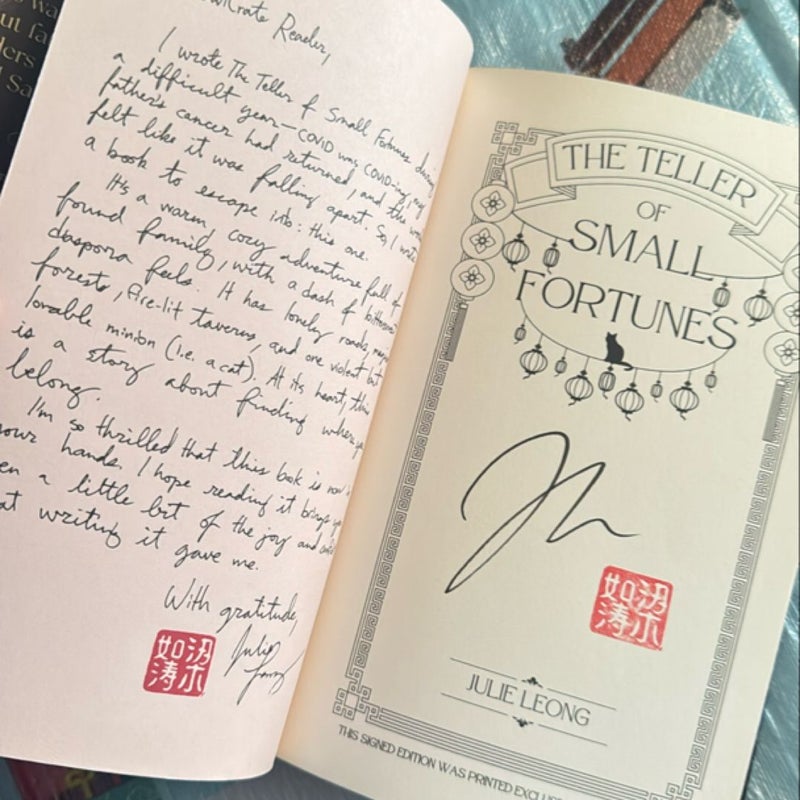 owlCrate Reader,
I wrote The Teller of Small Fortunes during
a difficult year—COVID was COVID-ing, my
father's cancer had returned, and the world
felt like it was falling apart. So, I wrote
a book to escape into: this one.
It's a warm, cozy adventure full of
found family, with a dash of bittersweet
diaspora feels. It has lonely roads,
forests, fire-lit taverns, and one violent but
lovable minion (i.e. a cat). At its heart, this
is a story about finding where you
belong.
I'm so thrilled that this book is now in
your hands. I hope reading it brings you
en a little bit of the joy and
at writing it gave me.
With gratitude,
Julie
Leong
梁如涛
THE TELLER
OF
SMALL
FORTUNES
梁如涛
JULIE LEONG
THIS SIGNED EDITION WAS PRINTED EXCLUS